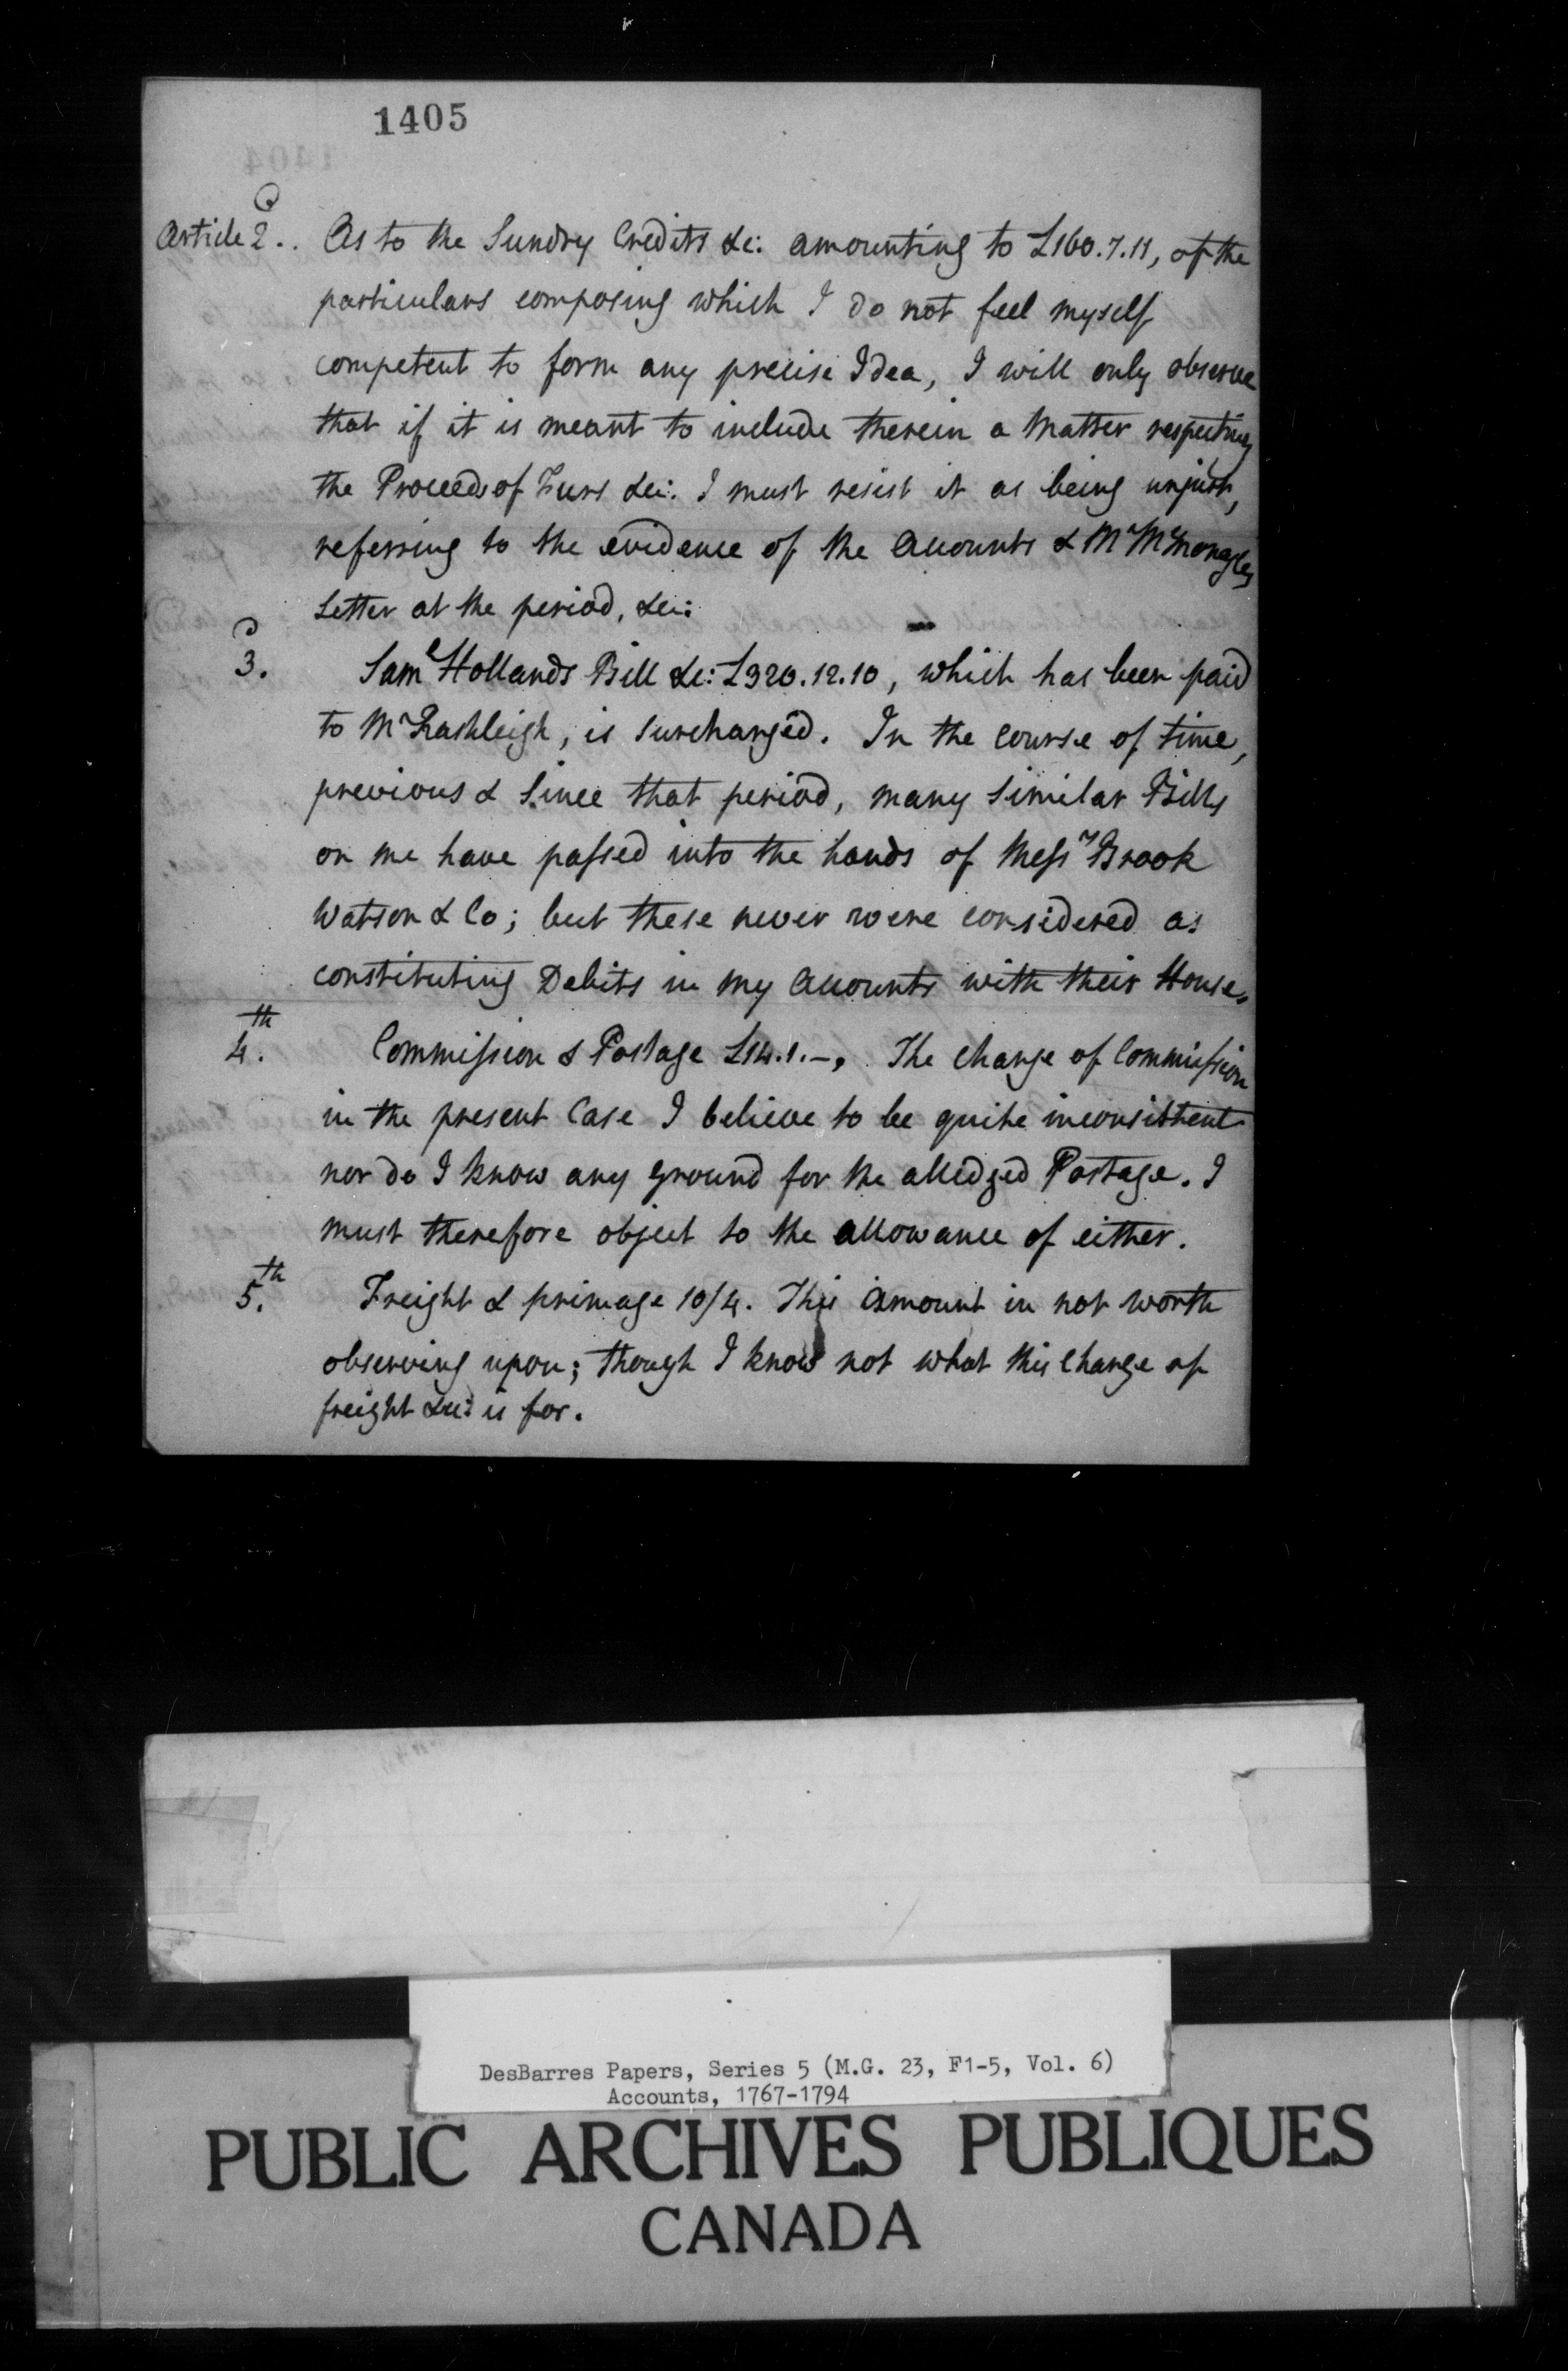 1405
Article 2d.. As to the Sundry Credits &c: amounting to £160.7.11, of the
particulars composing which I do not feel myself
competent to form any precise Idea, I will only observe
that if it is meant to include therein a Matter respecting
the Proceeds of Furs &c: I must resist it as being unjust,
referring to the evidence of the Accounts & Mr
Letter at the period, &c:
3d. Saml Hollands Bill &c: £320.12.10, which has been paid
to Mr Rashleigh, is surcharged. In the course of time,
previous & since that period, many similar Bills
on me have passed into the hands of Messrs Brook
Watson & Co; but these never were considered as
constituting Debits in my Accounts with their House.
4th. Commission & Postage £14.1.-, The charge of Commission
in the present Case I believe to be quite inconsistent
nor do I know any ground for the alledged Postage. I
must therefore object to the allowance of either.
5th. Freight & primage 10/4. This amount in not worth
observing upon; though I know not what this charge of
freight &c: is for.
DesBarres Papers, Series 5 (M.G. 23, F1-5, Vol. 6)
Accounts, 1767-1794
PUBLIC ARCHIVES PUBLIQUES
CANADA